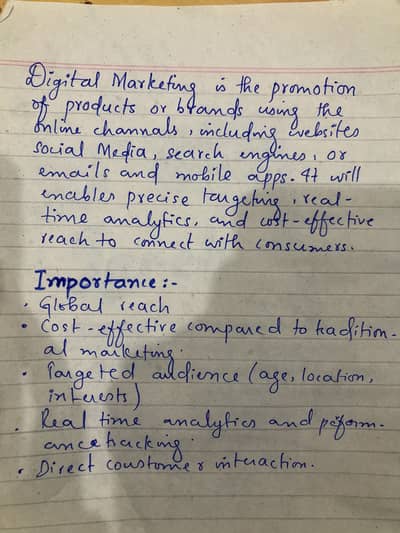 Digital Marketing is the promotion
of products or brands using the
online channals, including websites
social Media, search engines, or
emails and mobile apps. It will
enables precise targeting, real-
time analytics, and cost-effective
reach to connect with consumers.
Importance:-
• Global reach
• Cost-effective compared to tradition-
al marketing.
• Targeted audience (age, location,
interests)
• Real time analytics and peform-
ance tracking.
• Direct coustomer interaction.